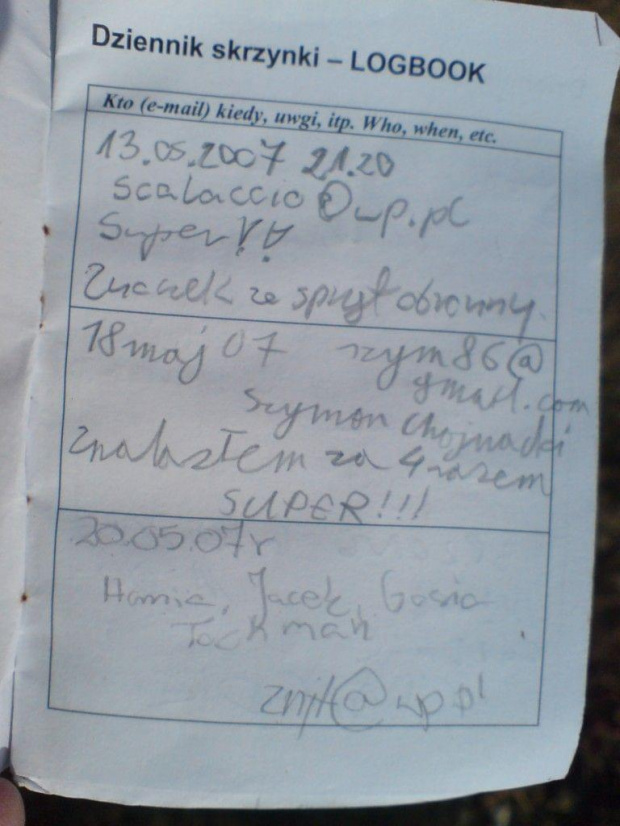 Dziennik skrzynki – LOGBOOK
Kto (e-mail) kiedy, uwgi, itp. Who, when, etc.
13.05.2007 21.20
scalaccio@wp.pl
Super!!
Znaczek za spryt obronny.
18 maj 07 szym86@
gmail.com
Szymon Chojnacki
Znalazłem za 4 razem
SUPER!!!
20.05.07r
Hania, Jacek, Gosia
@wp.pl